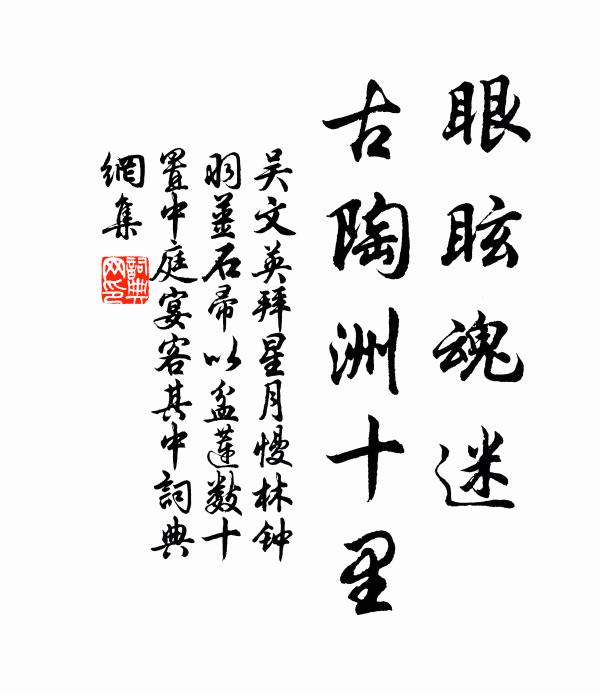 眼眩魂迷
古陶洲十里
吴文英拜星月慢林钟
羽薑石帚以盆蓮数十
置中庭宴客其中詞典
網集
詞典網印